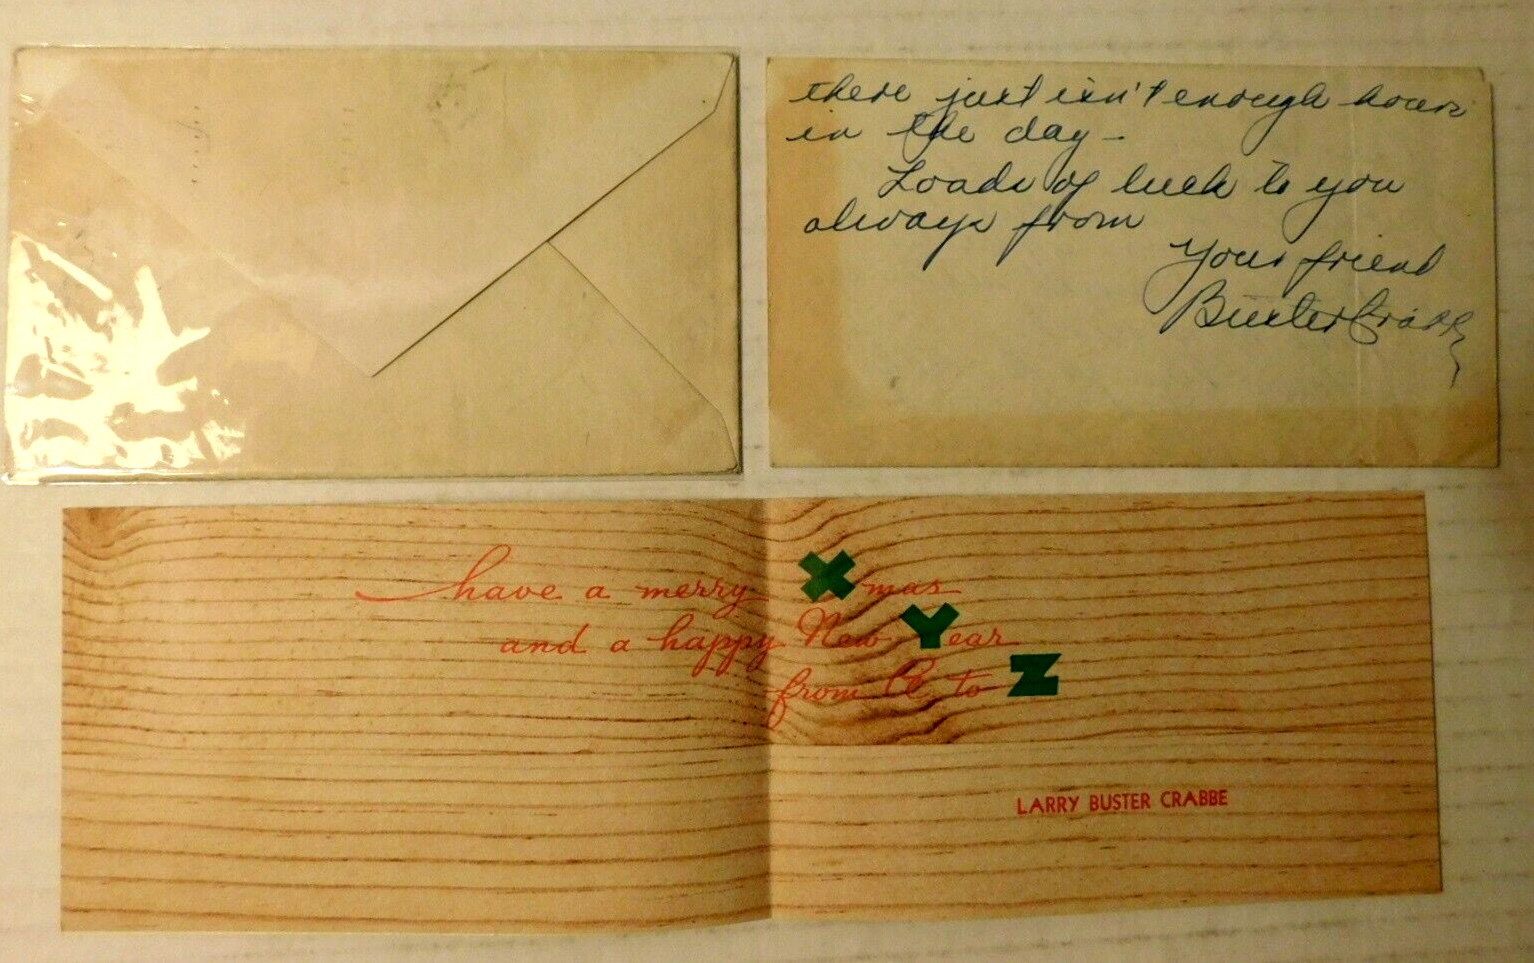 there just isn't enough hours
in the day -
Loads of luck to you
always from
Your friend
Buster Crabbe
have a merry Xmas
and a happy New Year
from A to Z
LARRY BUSTER CRABBE